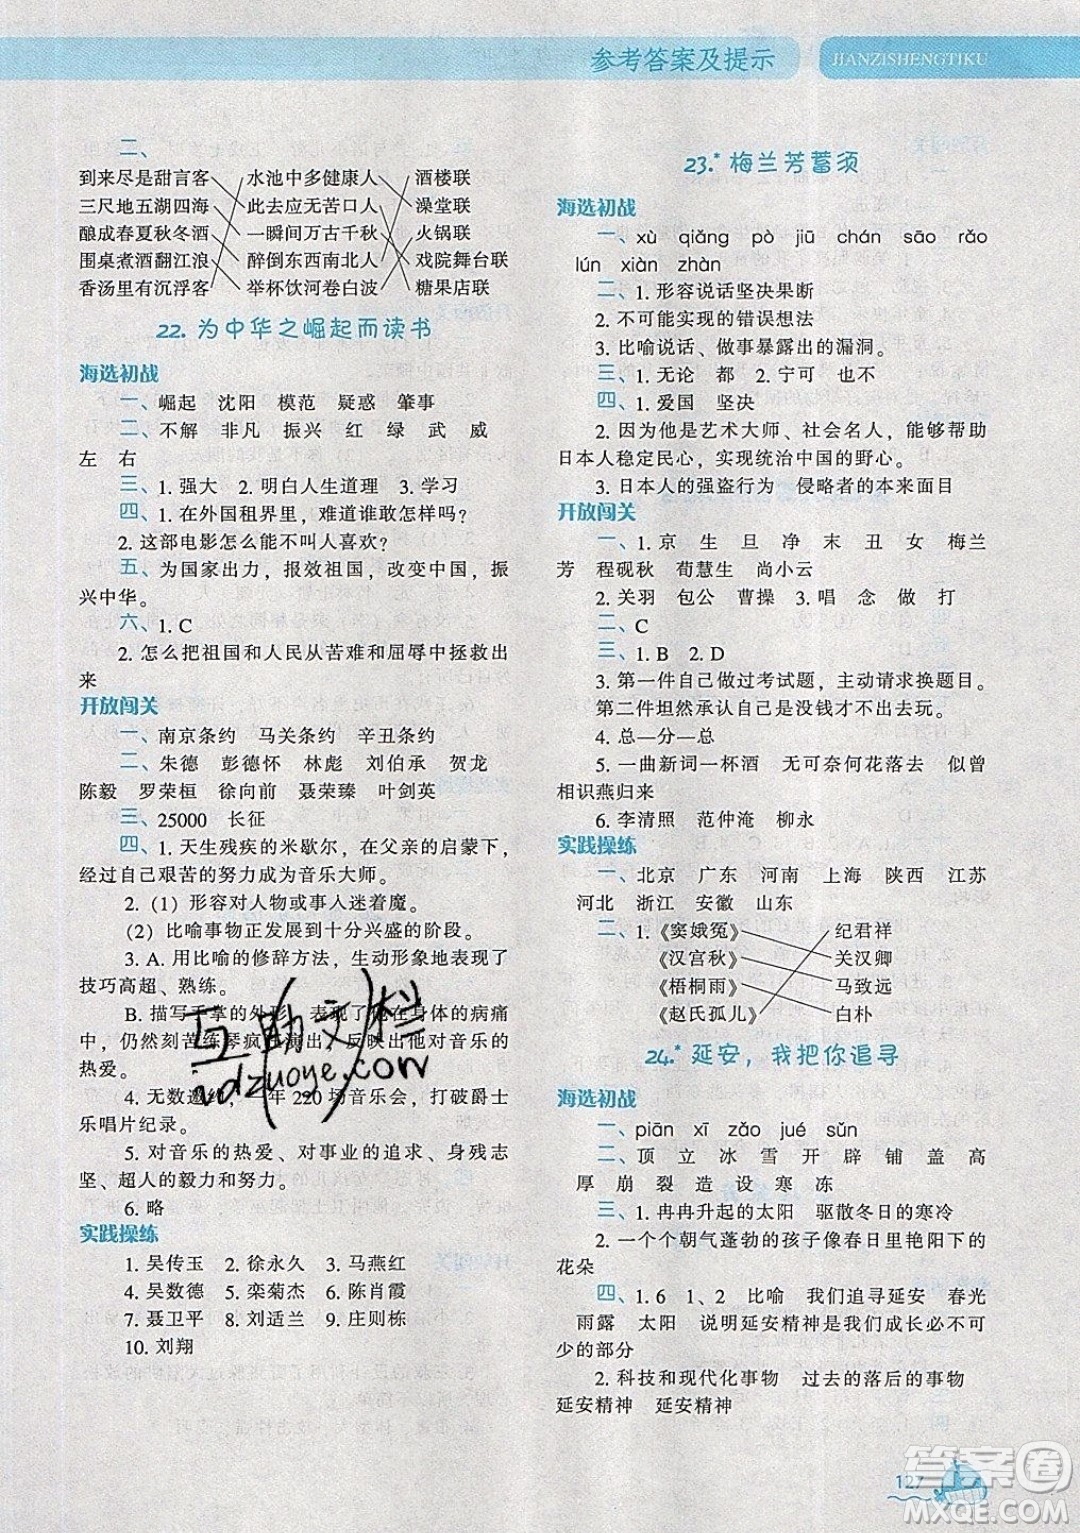 参考答案及提示
JIANZISHENGTIKU
二、
到来尽是甜言客 水池中多健康人 酒楼联
三尺地五湖四海 此去应无苦口人 澡堂联
酿成春夏秋冬酒 一瞬间万古千秋 火锅联
围桌煮酒翻江浪 醉倒东西南北人 戏院舞台联
香汤里有沉浮客 举杯饮河卷白波 糖果店联
22. 为中华之崛起而读书
海选初战
一、崛起 沈阳 模范 疑惑 肇事
二、不解 非凡 振兴 红 绿 武 威
左 右
三、1. 强大 2. 明白人生道理 3. 学习
四、1. 在外国租界里，难道谁敢怎样吗？
2. 这部电影怎么能不叫人喜欢？
五、为国家出力，报效祖国，改变中国，振
兴中华。
六、1. C
2. 怎么把祖国和人民从苦难和屈辱中拯救出
来
开放闯关
一、南京条约 马关条约 辛丑条约
二、朱德 彭德怀 林彪 刘伯承 贺龙
陈毅 罗荣桓 徐向前 聂荣臻 叶剑英
三、25000 长征
四、1. 天生残疾的米歇尔，在父亲的启蒙下，
经过自己艰苦的努力成为音乐大师。
2.（1）形容对人物或事人迷着魔。
（2）比喻事物正发展到十分兴盛的阶段。
3. A. 用比喻的修辞方法，生动形象地表现了
技巧高超、熟练。
B. 描写手掌的外形，表现了他在身体的病痛
中，仍然刻苦练琴疯狂演出，反映出他对音乐的
热爱。
4. 无数邀约，一年 220 场音乐会，打破爵士
乐唱片纪录。
5. 对音乐的热爱、对事业的追求、身残志
坚、超人的毅力和努力。
6. 略
实践操练
1. 吴传玉 2. 徐永久 3. 马燕红
4. 吴数德 5. 栾菊杰 6. 陈肖霞
7. 聂卫平 8. 刘适兰 9. 庄则栋
10. 刘翔
23.* 梅兰芳蓄须
海选初战
一、xù qiǎng pò jiū chán sāo rǎo
lún xiàn zhàn
二、1. 形容说话坚决果断
2. 不可能实现的错误想法
3. 比喻说话、做事暴露出的漏洞。
三、1. 无论 都 2. 宁可 也不
四、1. 爱国 坚决
2. 因为他是艺术大师、社会名人，能够帮助
日本人稳定民心，实现统治中国的野心。
3. 日本人的强盗行为 侵略者的本来面目
开放闯关
一、1. 京 生 旦 净 末 丑 女 梅兰
芳 程砚秋 荀慧生 尚小云
2. 关羽 包公 曹操 3. 唱 念 做 打
二、C
三、1. B 2. D
3. 第一件自己做过考试题，主动请求换题目。
第二件坦然承认自己是没钱才不出去玩。
4. 总—分—总
5. 一曲新词一杯酒 无可奈何花落去 似曾
相识燕归来
6. 李清照 范仲淹 柳永
实践操练
一、北京 广东 河南 上海 陕西 江苏
河北 浙江 安徽 山东
二、1.《窦娥冤》 纪君祥
《汉宫秋》 关汉卿
《梧桐雨》 马致远
《赵氏孤儿》 白朴
24.* 延安，我把你追寻
海选初战
一、piān xī zǎo jué sǔn
二、顶 立 冰 雪 开 辟 铺 盖 高
厚 崩 裂 造 设 寒 冻
三、1. 冉冉升起的太阳 驱散冬日的寒冷
2. 一个个朝气蓬勃的孩子像春日里艳阳下的
花朵
四、1. 6 1、2 比喻 我们追寻延安 春光
雨露 太阳 说明延安精神是我们成长必不可
少的部分
2. 科技和现代化事物 过去的落后的事物
延安精神 延安精神
127
互助文栏
hdzuoye.com
答案圈
MXQE.COM